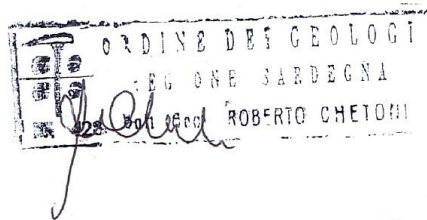 ORDINE DEI GEOLOGI
REGIONE SARDEGNA
N. 28 Dott. Geol. ROBERTO CHETONI